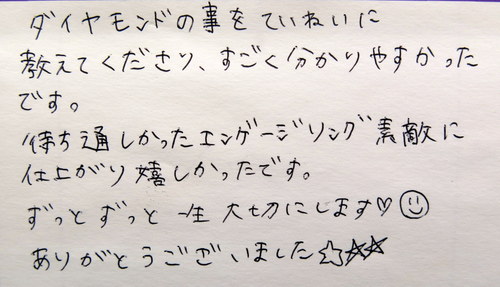 ダイヤモンドの事をていねいに
教えてくださり、すごく分かりやすかった
です。
待ち通しかったエンゲージリング素敵に
仕上がり嬉しかったです。
ずっとずっと一生大切にします♡☺
ありがとうございました☆★★